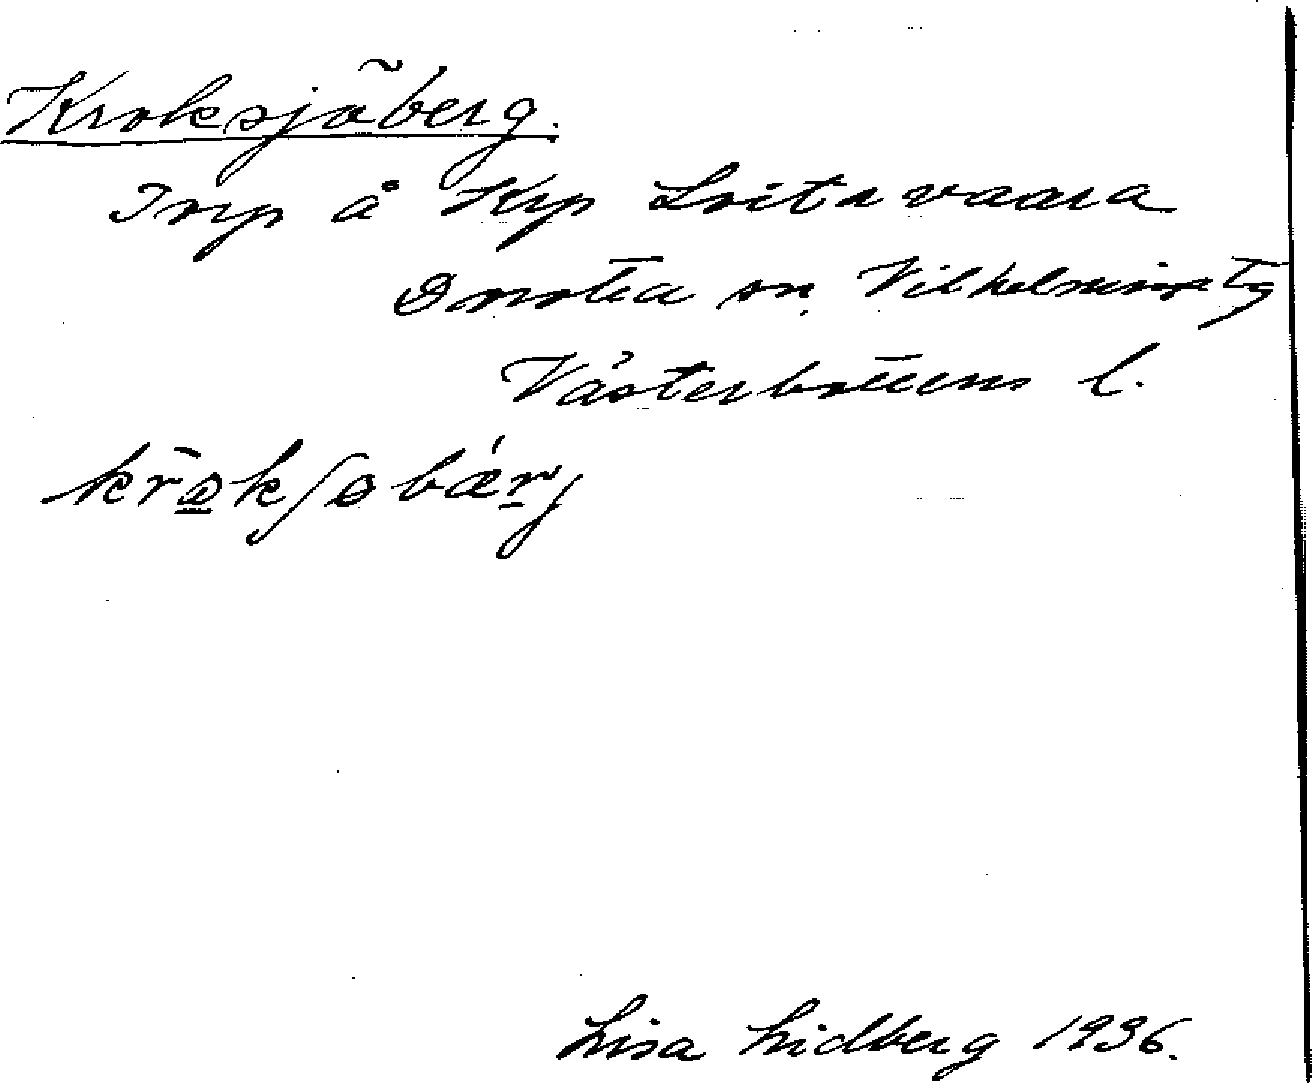 Kroksjöberg.
Torp å Krp Loitavaara
Dorotea sn. Vilhelmina tg
Västerbottens l.
krokʃobærj
Lisa Lidberg 1936.